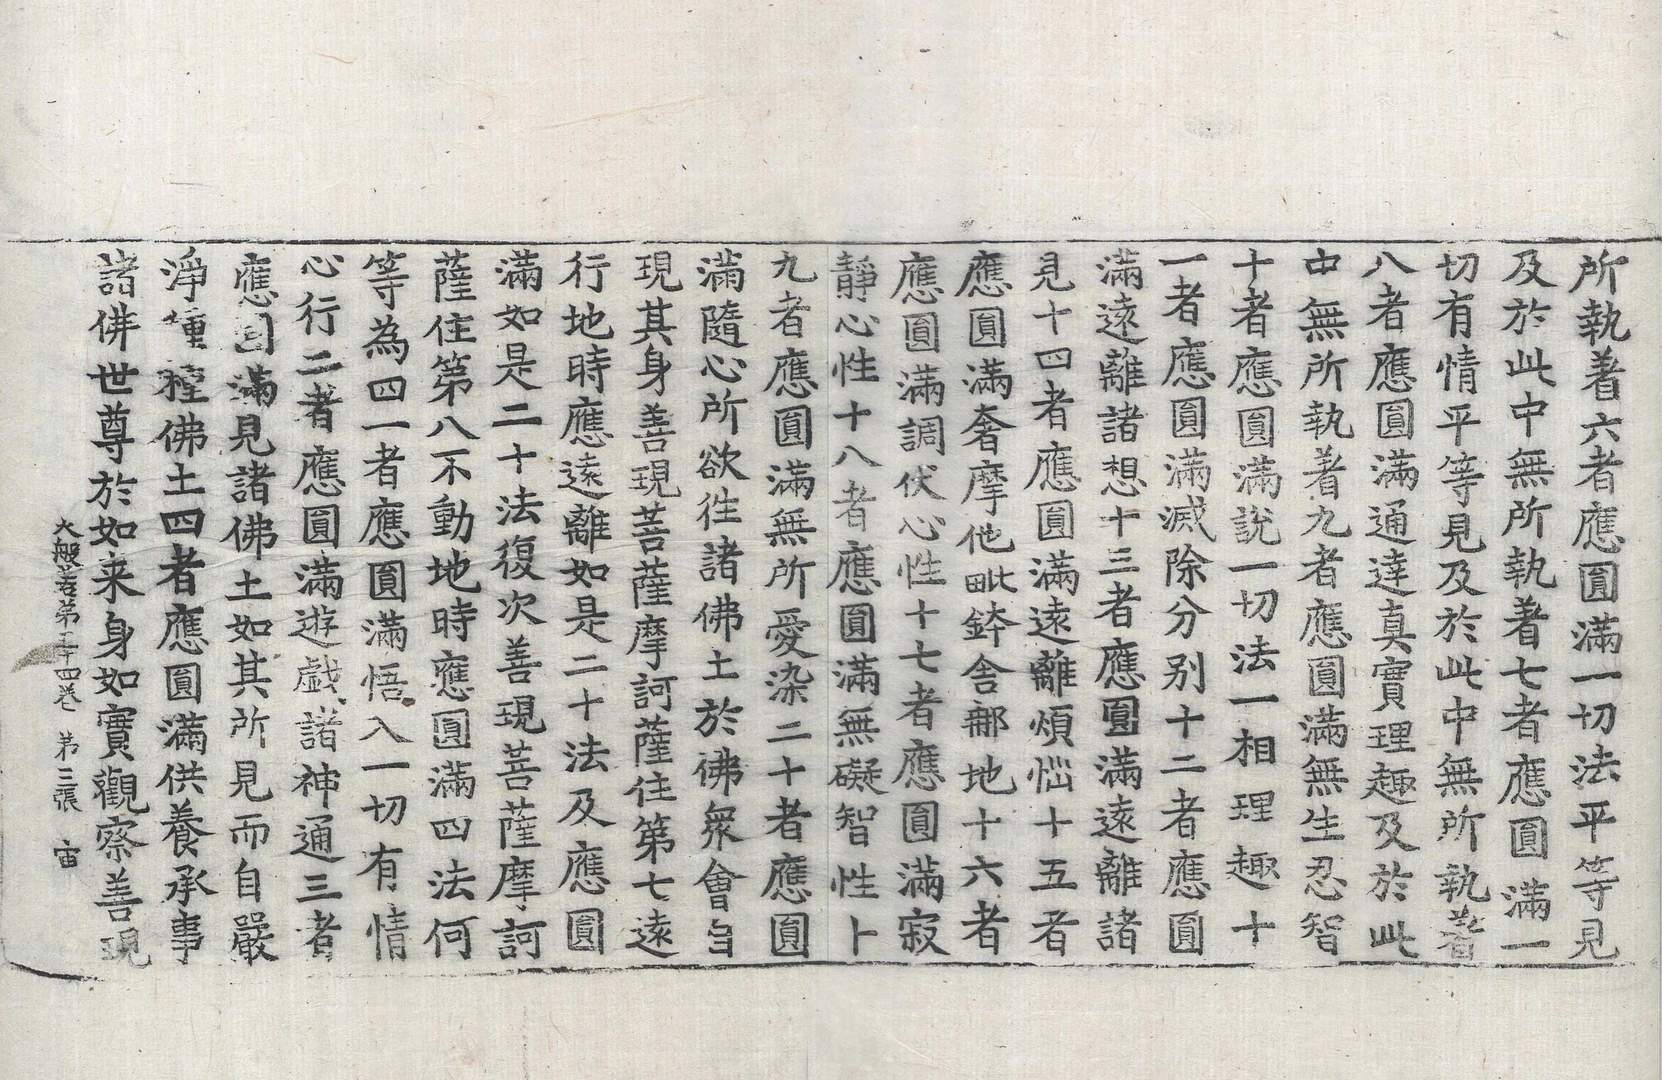 所執著六者應圓滿一切法平等見
及於此中無所執著七者應圓滿一
切有情平等見及於此中無所執著
八者應圓滿通達真實理趣及於此
中無所執著九者應圓滿無生忍智
十者應圓滿說一切法一相理趣十
一者應圓滿滅除分别十二者應圓
滿遠離諸想十三者應圓滿遠離諸
見十四者應圓滿遠離煩惱十五者
應圓滿奢摩他毗鉢舍那地十六者
應圓滿調伏心性十七者應圓滿寂
靜心性十八者應圓滿無礙智性十
九者應圓滿無所愛染二十者應圓
滿隨心所欲往諸佛土於佛衆會自
現其身善現菩薩摩訶薩住第七遠
行地時應遠離如是二十法及應圓
滿如是二十法復次善現菩薩摩訶
薩住第八不動地時應圓滿四法何
等為四一者應圓滿悟入一切有情
心行二者應圓滿遊戲諸神通三者
應圓滿見諸佛土如其所見而自嚴
淨種種佛土四者應圓滿供養承事
諸佛世尊於如来身如實觀察善現
大般若第五十四卷 第三張 宙